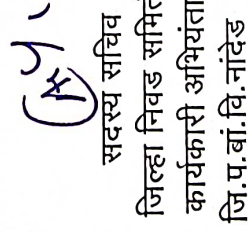 सदस्य सचिव
जिल्हा निवड समिती
कार्यकारी अभियंता
जि.प.बां.वि.नांदेड